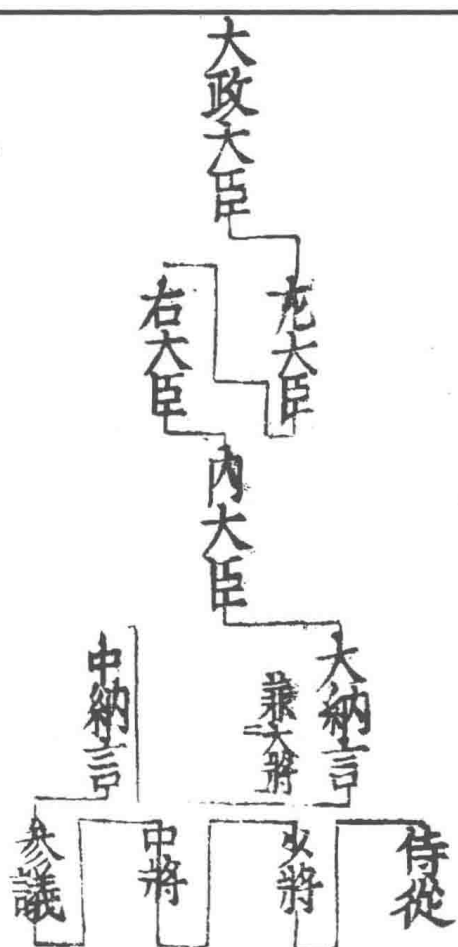 大政大臣
左大臣
右大臣
內大臣
大納言
兼大將
中納言
侍從
少將
中將
參議